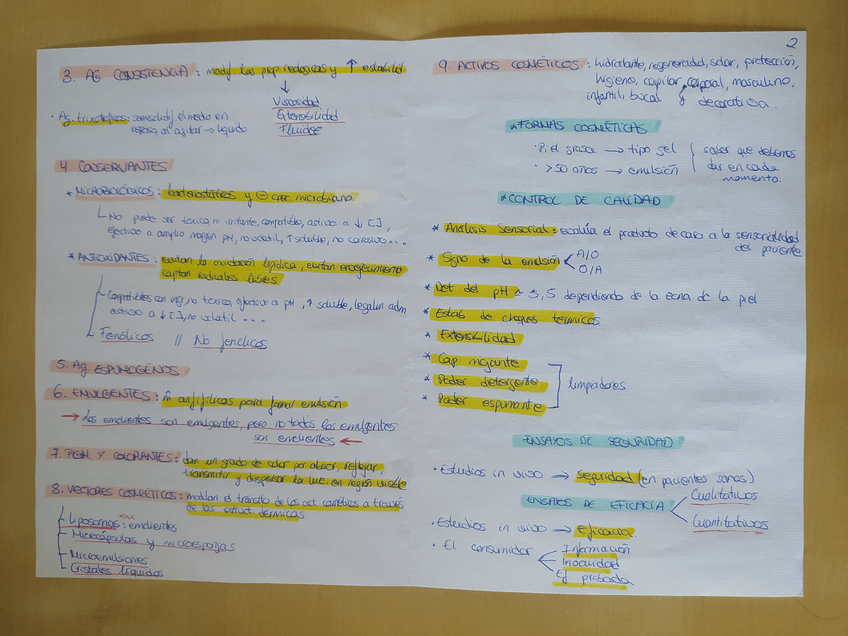 3. AG CONSISTENCIA: modif las prop reológicas y ↑ estabilidad
↓
Viscosidad
Extensibilidad
Fluidez
· Ag. tixotrópicos: semisólid y el modo en
reposo, al agitar → líquido
4. CONSERVANTES
* MICROBIOLÓGICOS: bacteriostáticos y ⊖ crec. microbiano
No puede ser tóxico ni irritante, compatible, activo a ↓ [ ],
efectivo a amplio margen pH, no volátil, ↑ soluble, no corrosivo...
* ANTIOXIDANTES: evitan la oxidación lipídica, evitan enranciamiento
captan radicales libres
Compatibles con ing, no tóxico, efectivo a pH, ↑ soluble, legalm adm
activo a ↓ [ ], no volátil ...
Fenólicos // No fenólicos
5. Ag. ESPUMÓGENOS
6. EMULGENTES: anfifílicas para formar emulsión
→ Los emolientes son emulgentes, pero no todos los emulgentes
son emolientes ←
7. PIGM. Y COLORANTES: dan un grado de color por absor, reflejar,
transmitir y dispersar la luz en región visible
8. VECTORES COSMÉTICOS: modulan el tránsito de los act. cosméticos a través
de las estruct dérmicas
Liposomas: emolientes
Microcápsulas y microesponjas
Microemulsiones
Cristales líquidos
2
9 ACTIVOS COSMÉTICOS: hidratante, regenerador, solar, protección,
higiene, capilar, corporal, masculino,
infantil, bucal y decorativa.
* FORMAS COSMÉTICAS
· Piel grasa → tipo gel
· >50 años → emulsión
saber que debemos
dar en cada
momento.
* CONTROL DE CALIDAD
* Análisis Sensorial: evalúa el producto de cara a la sensorialidad
del paciente
* Signo de la emulsión < A/O
O/A
* Det del pH ~ 5,5 dependiendo de la zona de la piel
* Estab de choques térmicos
* Extensibilidad
* Cap. mojante
* Poder detergente
* Poder espumante
limpiadores
ENSAYOS DE SEGURIDAD
· Estudios in vivo → Seguridad (en pacientes sanos)
ENSAYOS DE EFICACIA < Cualitativos
Cuantitativos
· Estudios in vivo → Eficacia
· El consumidor < Información
Inocuidad
Ef probada